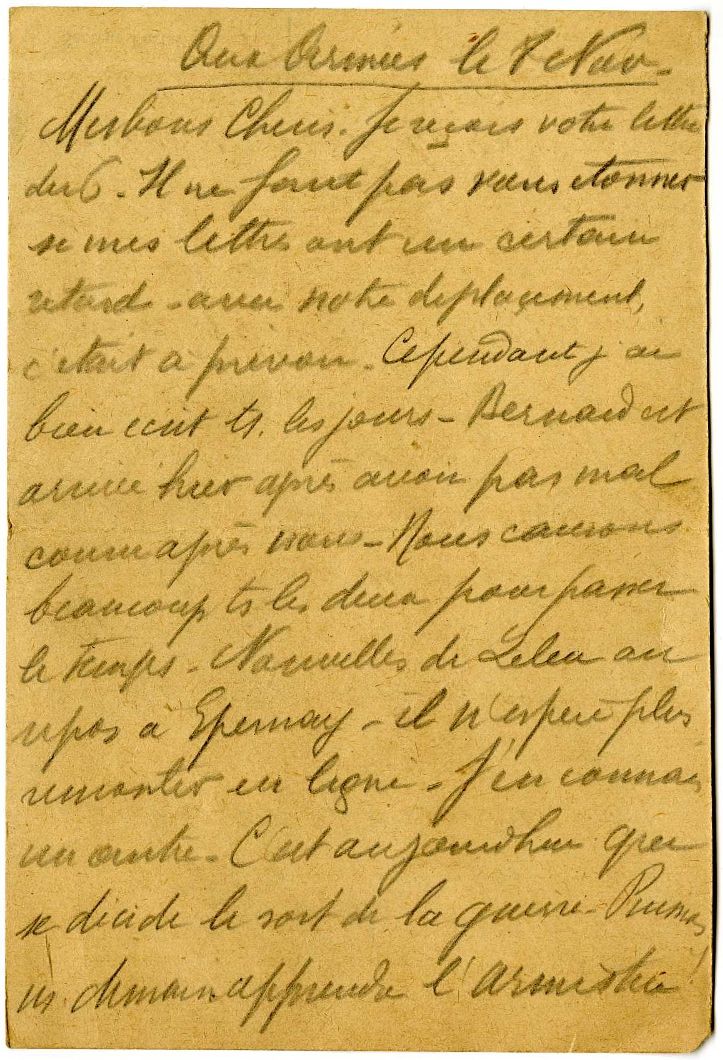 Aux Armées le 8 Nov-
Mes bons Chéris. Je reçois votre lettre
du 6. Il ne faut pas vous étonner
si mes lettres ont un certain
retard - avec notre déplacement,
c'était à prévoir. Cependant j'ai
bien écrit ts. les jours - Bernard est
arrivé hier après avoir pas mal
couru après nous - Nous causons
beaucoup ts les deux pour passer
le temps - Nouvelles de Lelex au
repos à Epernay - il n'espère plus
remonter en ligne - J'en connais
un autre. C'est aujourd'hui que
se décide le sort de la guerre - Puissions
ns. demain apprendre l'Armistice!